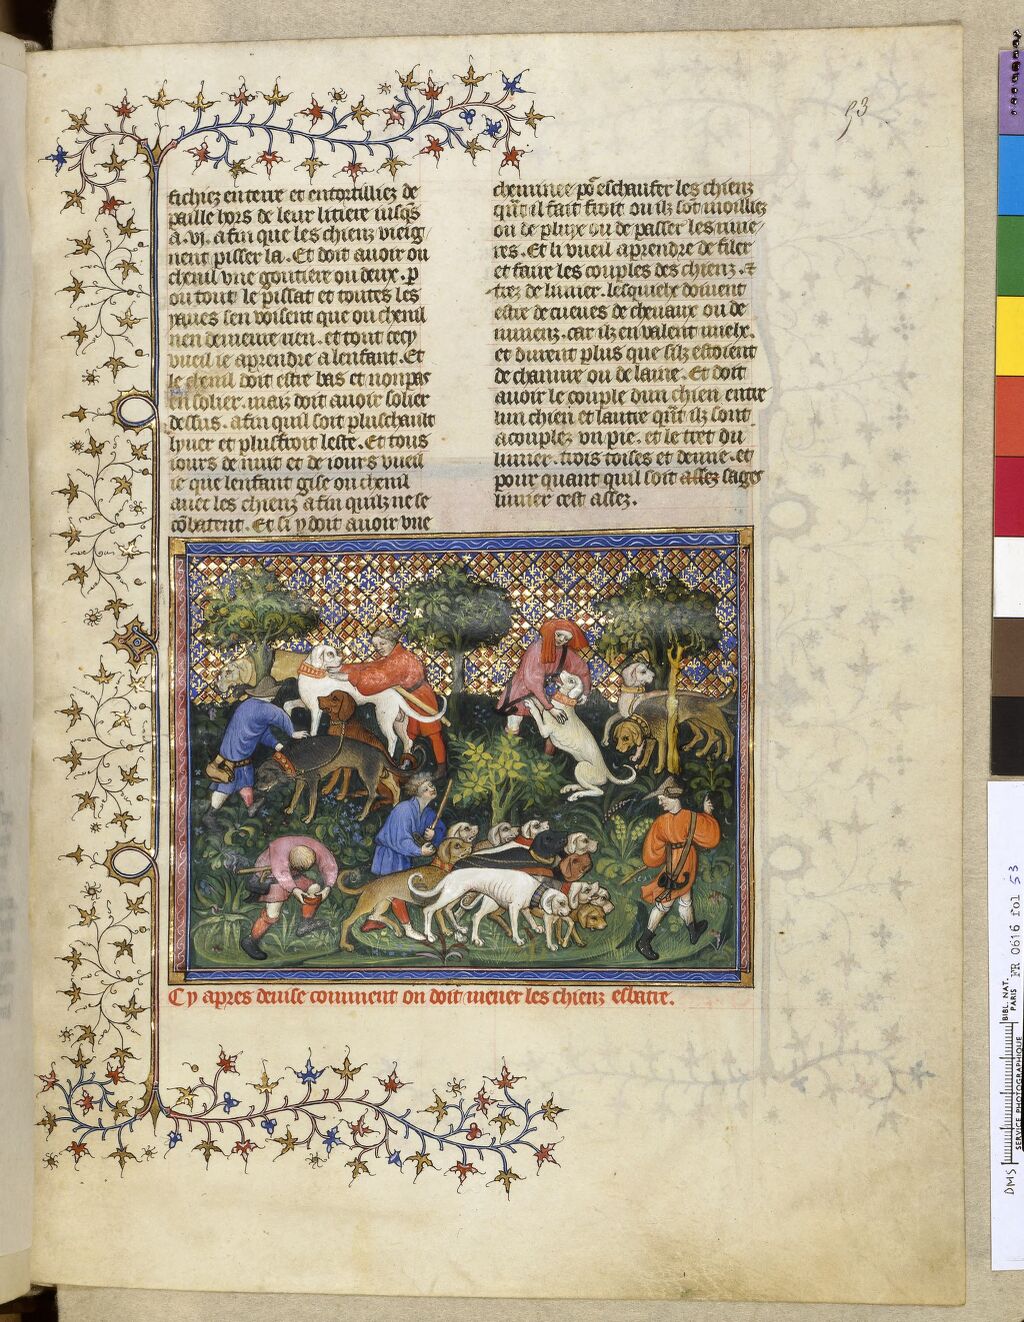 53
fichiez en terre et entortilliez de
paille hors de leur litiere iusqs
a .vi. afin que les chienz vieig
nent pisser la. Et doit auoir ou
chenil vne goutiere ou deux. p
ou tout le pissat et toutes les
yaues sen voisent que ou chenil
nen demeure rien. et tout cecy
vueil ie aprendre a lenfant. Et
le chenil doit estre bas et non pas
en solier. maiz doit auoir solier
dessus. afin quil soit plus chault
lyuer et plus froit leste. Et tous
iours de nuit et de iours vueil
ie que lenfant gise ou chenil
auec les chienz afin quilz ne se
cōbatent. Et si y doit auoir vne
cheminee pō eschaufer les chienz
qn̄t il fait froit ou ilz sōt moilliez
ou de pluye ou de passer les riuie
res. Et li vueil aprendre de filer
et faire les couples des chienz. ⁊
trez de limier. lesquelx doiuent
estre de cueues de cheuaux ou de
iumenz. car ilz en valent mielx.
et durent plus que silz estoient
de chanure ou de laine. Et doit
auoir le couple dun chien entre
lun chien et lautre qn̄t ilz sont
acouplez vn pie. et le tret du
limier. trois toises et demie. et
pour quant quil soit assez sages
limier cest assez.
Cy apres deuise comment on doit mener les chienz esbatre.
BIBL. NAT. PARIS
FR 0616 fol 53
DMS
SERVICE PHOTOGRAPHIQUE